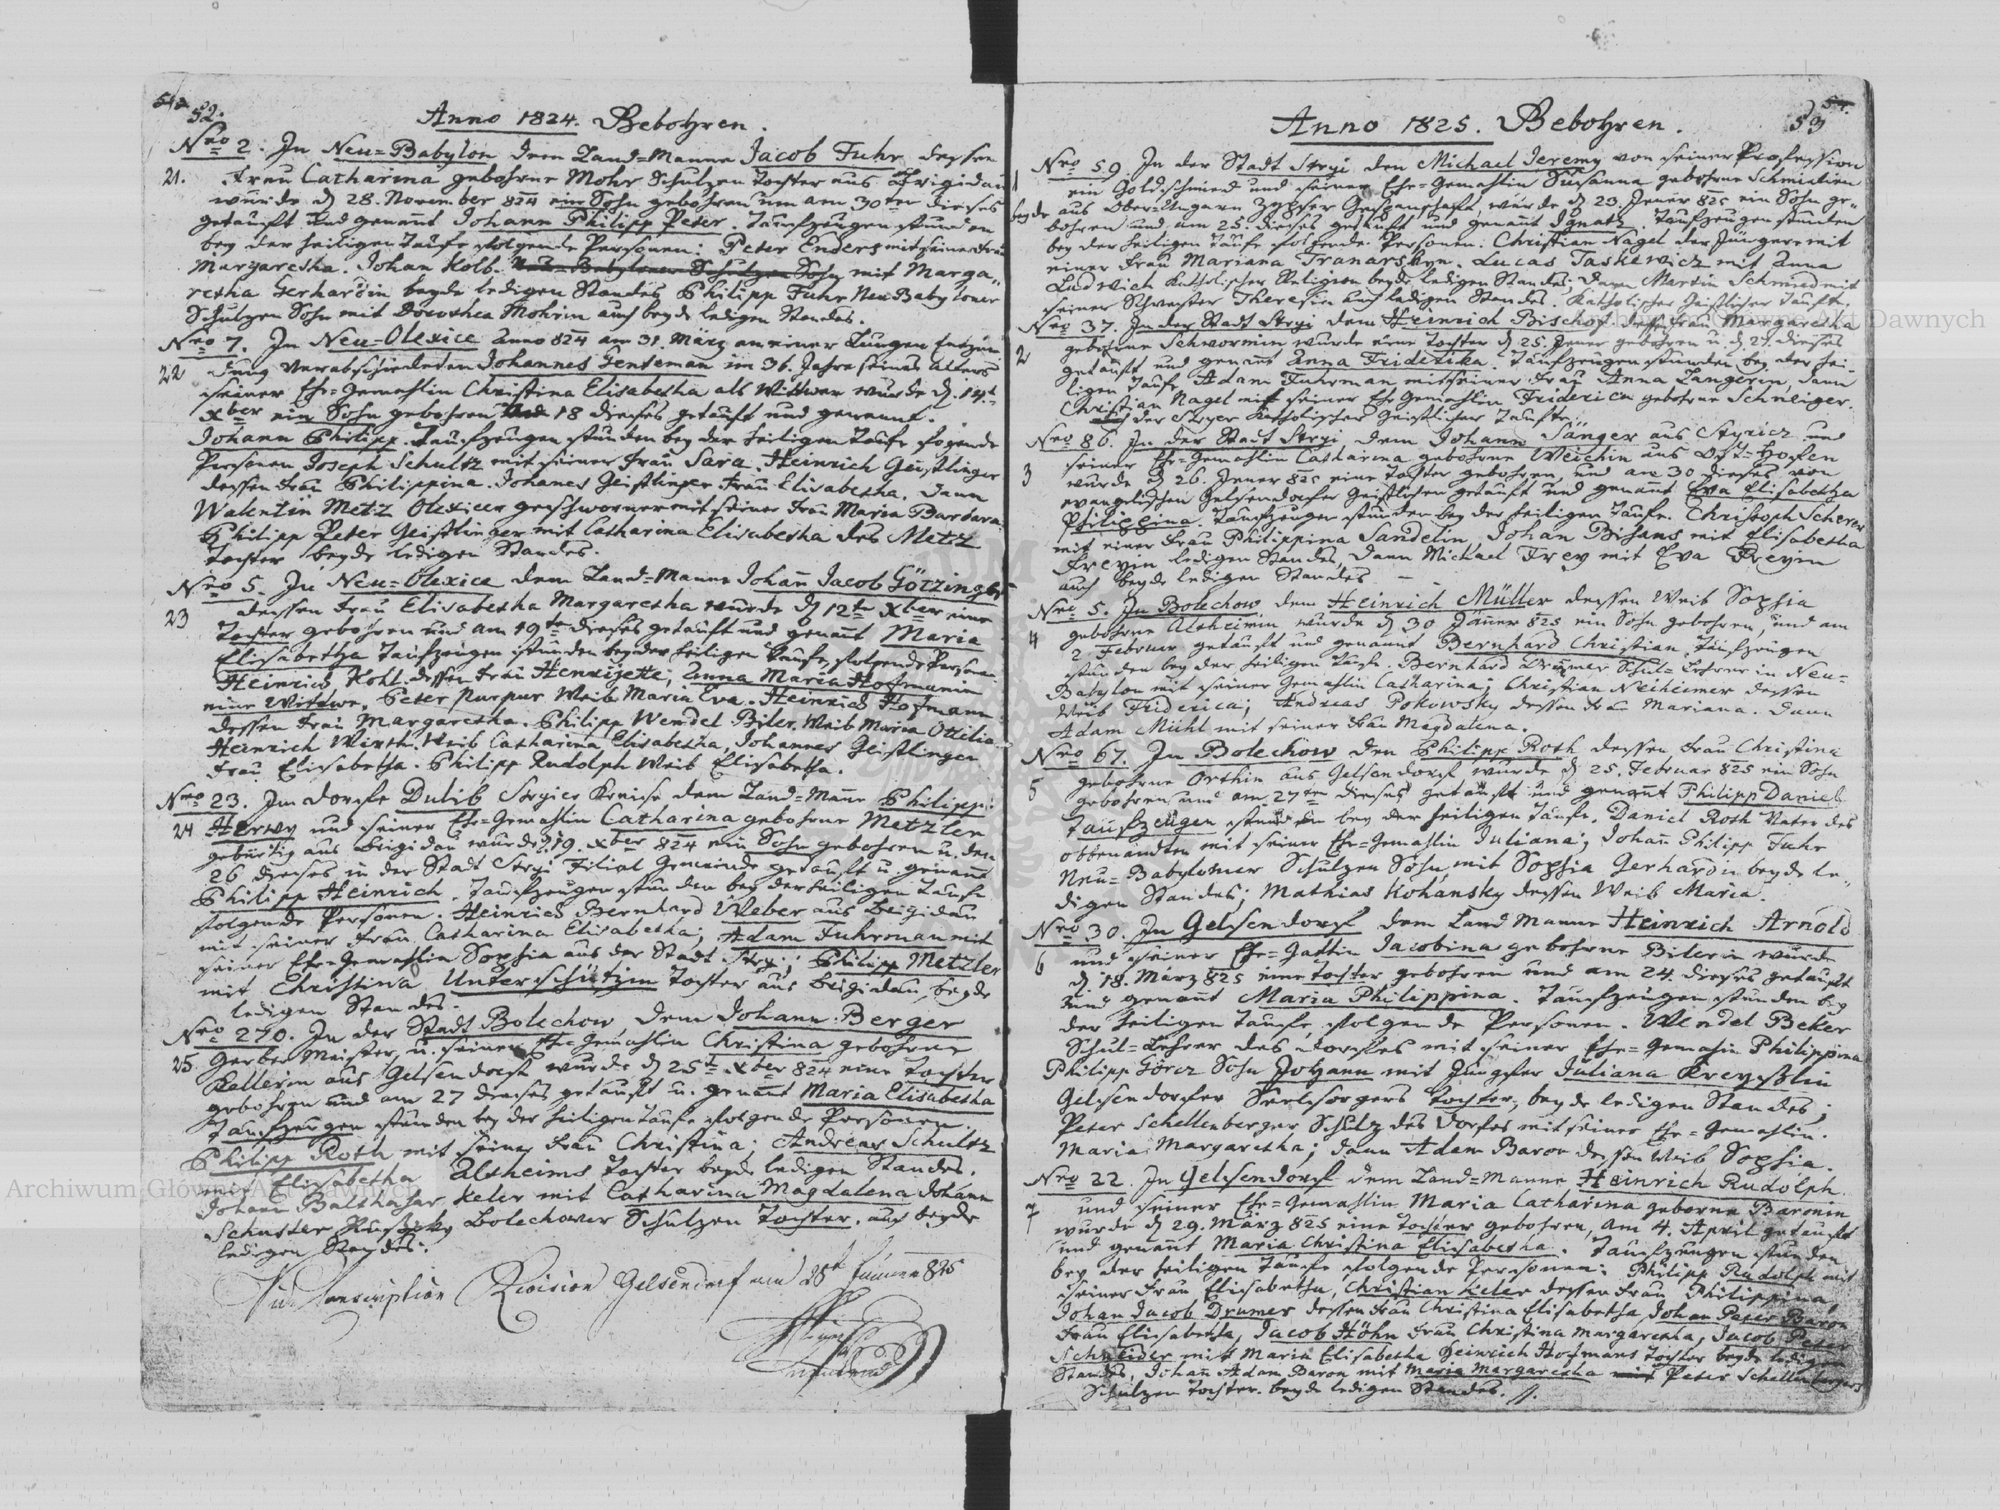 52.
Anno 1824. Bebohren.
Nro 2. In Neu=Babylon dem Land=Manne Jacob Fuhr dessen
21. Frau Catharina gebohrne Mohr Schulzen Tochter aus Brigidau
wurde d 28. November 824 ein Sohn gebohren um am 30ten dieses
getauft und genant Johann Philipp Peter. Taufzeugen stunden
bey der heiligen Taufe folgende Personen: Peter Enders mit seiner Frau
Margaretha. Johan Kolb. Neu=Babyloner Schulzen Sohn mit Marga„
retha Gerhardin beyde ledigen Standes Philipp Fuhr Neu Babyloner
Schulzen Sohn mit Dorothea Mohrin auch beyde ledigen Standes.
Nro 7. In Neu=Olexice anno 824 am 31. März an einer Lungen Entzün
22 dung verabschiedeten Johannes Genteman im 36. Jahre seines Alters
seiner Ehe=Gemahlin Christina Elisabetha als Wittwer wurde d. 14t
xber ein Sohn gebohren 18 dieses getauft und genennt.
Johann Philipp. Taufzeugen stunden bey der heiligen Taufe folgende
Personen Joseph Schultz mit seiner Frau Sara. Heinrich Geistlinger
dessen Frau Philippina. Johanes Geistlinger Frau Elisabetha. Dann
Walentin Metz Olexicer geschworner mit seiner Frau Maria Barbara.
Philipp Peter Geistlinger mit Catharina Elisabetha des Metz
Tochter beyde ledigen Standes.
Nro 5. In Neu=Olexice dem Land=Manne Johan Jacob Götzinger
23 dessen Frau Elisabetha Margaretha wurde d 12te xber eine
Tochter gebohren und am 19te dieses getauft und genant Maria
Elisabetha Taufzeugen stunden bey der heiligen Taufe folgende Personen
Heinrich Kohl dessen Frau Henrijette, Anna Maria Hofmanin
eine Wittwe. Peter Purpur Weib Maria Eva. Heinrich Hofmann
dessen Frau Margaretha. Philipp Wendel Biler. Weib Maria Ottilia
Heinrich Wirth. Weib Catharina Elisabetha, Johannes Geistlinger
Frau Elisabetha. Philipp Rudolph Weib Elisabetha.
Nro 23. Im Dorfe Dulib Stryier Kreise dem Land=Manne Philipp
24 Herwy und seiner Ehe=Gemahlin Catharina gebohrne Metzler
gebürtig aus Brigidau wurde d. 19. xber 824 ein Sohn gebohren u. den
26 dieses in der Stadt Stryi Filial Gemeinde getauft u. genant
Philipp Heinrich. Taufzeugen stunden bey der heiligen Taufe
folgende Personen. Heinrich Bernhard Weber aus Brigidau
mit seiner Frau Catharina Elisabetha; Adam Fuhrman mit
seiner Ehe=Gemahlin Sophia aus der Stadt Stryi; Philipp Metzler
mit Christina Unterschützin Tochter aus Brigidau, beyde
ledigen Standes.
Nro 270. In der Stadt Bolechow, dem Johann Berger
25 Gerber Meister, u. seiner Ehe=Gemahlin Christina gebohrne
Kallerin aus Gelsendorf wurde d 25t xber 824 eine Tochter
gebohren und am 27 dieses getauft u. genant Maria Elisabetha
Taufzeugen stunden bey der heiligen Taufe folgende Personen.
Philipp Roth mit seiner Frau Christina; Andreas Schultz
mit Elisabetha Altheims Tochter beyde ledigen Standes.
Johann Balthasar Keler mit Catharina Magdalena Johann
Schuster Bolechower Schulzen Tochter, auch beyde
ledigen Standes.
Revision Gelsendorf am 28t 825
54
53
Anno 1825. Bebohren.
Nro 59. In der Stadt Stryi den Michael Jeremy von seiner Profession
1 ein Goldschmied und seiner Ehe=Gemahlin Susanna gebohrne Schmidien
beyde aus Ober=Ungarn Zypser Gespanschaft, wurde d 23. Jener 825 ein Sohn ge„
bohren und am 25. dieses getauft und genant Ignatz. Taufzeugen stunden
bey der heiligen Taufe folgende Personen: Christian Nagel der Jüngere mit
einer Frau Mariana Tranarskyn. Lucas Taskewicz mit Anna
Ludwich Katholischer Religion beyde ledigen Standes; Dann Martin Schmied mit
seiner Schwester Theresia auch ledigen Standes. Katholischer Geistlicher Taufte.
Nro 37. In der Stadt Stryi dem Heinrich Bischof dessen Frau Margaretha
2 gebohrne Schwormin wurde eine Tochter d 25. Jener gebohren u. d 27. dieses
getauft und genant Anna Friderika. Taufzeugen stunden bey der hei-
ligen Taufe Adam Fuhrman mit seiner Frau Anna Langerin, dann
Christian Nagel mit seiner Ehe Gemahlin Friderica gebohrne Schneiger.
der Stryer Katholischer Geistlicher Taufte.
Nro 86. In der Stadt Stryi, dem Johann Sänger aus Stryicz und
3 seiner Ehe=Gemahlin Catharina gebohrne Weichin aus Ost=Hofen
wurde d 26. Jener 825 eine Tochter gebohren, und am 30 dieses von
evangelischen Gelsendorfer Geistlichen getauft und genant Eva Elisabetha
Philippina. Taufzeugen stunden bey der heiligen Taufe. Christoph Scherer
mit einer Frau Philippina Sandelin, Johan Bisans mit Elisabetha
Freyin ledigen Standes, Dann Michael Frey mit Eva Freyin
auch beyde ledigen Standes —
Nro 5. In Bolechow dem Heinrich Müller dessen Weib Sophia
4 gebohrne Altheimin wurde d 30 Jäner 825 ein Sohn gebohren, und am
2 Februar getauft und genannt Bernhard Christian, Taufzeugen
stunden bey der heiligen Taufe. Bernhard Drümer Schul=Lehrer in Neu-
Babylon mit seiner Gemahlin Catharina; Christian Neiheimer dessen
Weib Friderica; Andreas Pokowsky dessen Frau Mariana. Dann
Adam Mühl mit seiner Frau Magdalena.
Nro 67. In Bolechow den Philipp Roth dessen Frau Christina
5 gebohrne Orthin aus Gelsendorf wurde d 25. Februar 825 ein Sohn
gebohren und am 27te dieses getauft und genant Philipp Daniel
Taufzeugen stunden bey der heiligen Taufe. Daniel Roth Vater des
obbenandten mit seiner Ehe=Gemahlin Juliana; Johann Philipp Fuhr
Neu=Babyloner Schulzen Sohn, mit Sophia Gerhardin beyde le„
digen Standes; Mathias Kohansky dessen Weib Maria.
Nro 30. In Gelsendorf dem Land Manne Heinrich Arnold
6 und seiner Ehe=Gattin Jacobina gebohrne Bilerin wurde
d 18. März 825 eine Tochter gebohren und am 24. dieses getauft
und genant Maria Philippina. Taufzeugen stunden bey
der heiligen Taufe folgende Personen. Wendel Beker
Schul=Lehrer des Dorfes mit seiner Ehe=Gemahlin Philippina
Philipp Görcz Sohn Johann mit Jungfer Juliana Kreyßlin
Gelsendorfer Seelsorgers Tochter, beyde ledigen Standes;
Peter Schellenberger Schulz des Dorfes mit seiner Ehe=Gemahlin.
Maria Margaretha; Dann Adam Baron dessen Weib Sophia.
Nro 22. In Gelsendorf dem Land=Manne Heinrich Rudolph.
7 und seiner Ehe=Gemahlin Maria Catharina geborne Baronin
wurde d 29. März 825 eine Tochter gebohren, am 4. April getauft
und genant Maria Christina Elisabetha. Taufzeugen stunden
bey der heiligen Taufe folgende Personen: Philipp Rudolph mit
seiner Frau Elisabetha, Christian Keler dessen Frau Philippina,
Johan Jacob Drumer dessen Frau Christina Elisabetha, Johan Peter Baron
Frau Elisabetha, Jacob Höhn Frau Christina Margaretha, Jacob Peter
Schneider mit Maria Elisabetha Heinrich Hofmans Tochter beyde ledigen
Standes, Johan Adam Baron mit Maria Margaretha Peter Schellenbergers
Schulzen Tochter beyde ledigen Standes.
Archiwum Główne Akt Dawnych
Archiwum Główne Akt Dawnych